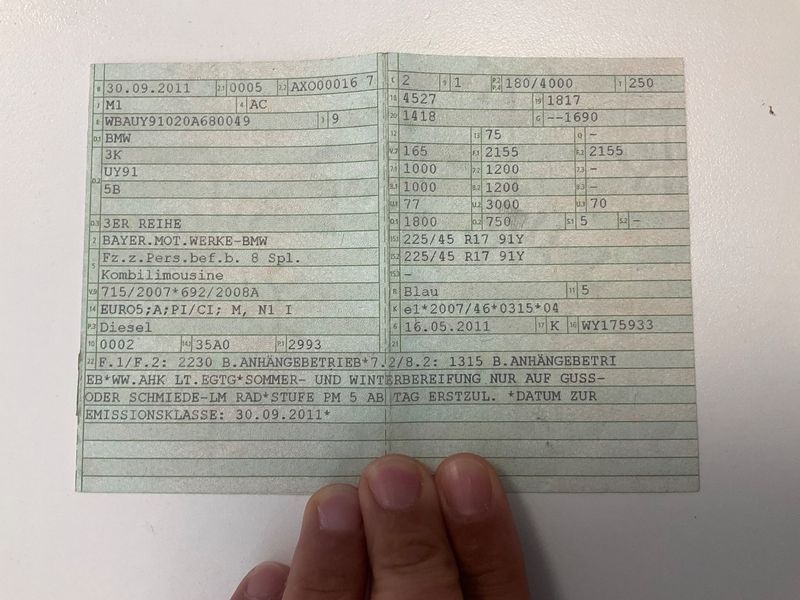 B 30.09.2011 2.1 0005 2.2 AXO00016 7
J M1 4 AC
E WBAUY91020A680049 3 9
D.1 BMW
3K
D.2 UY91
5B
D.3 3ER REIHE
2 BAYER.MOT.WERKE-BMW
5 Fz.z.Pers.bef.b. 8 Spl.
Kombilimousine
V.9 715/2007*692/2008A
14 EURO5;A;PI/CI; M, N1 I
P.3 Diesel
10 0002 14.1 35A0 P.1 2993
L 2 9 1 P.2 P.4 180/4000 T 250
18 4527 19 1817
20 1418 G --1690
12 13 75 Q -
V.7 165 F.1 2155 F.2 2155
7.1 1000 7.2 1200 7.3 -
8.1 1000 8.2 1200 8.3 -
U.1 77 U.2 3000 U.3 70
O.1 1800 O.2 750 S.1 5 S.2 -
15.1 225/45 R17 91Y
15.2 225/45 R17 91Y
15.3 -
R Blau 11 5
K e1*2007/46*0315*04
6 16.05.2011 17 K 16 WY175933
21
22 F.1/F.2: 2230 B.ANHÄNGEBETRIEB*7.2/8.2: 1315 B.ANHÄNGEBETRI
EB*WW.AHK LT.EGTG*SOMMER- UND WINTERBEREIFUNG NUR AUF GUSS-
ODER SCHMIEDE-LM RAD*STUFE PM 5 AB TAG ERSTZUL. *DATUM ZUR
EMISSIONSKLASSE: 30.09.2011*